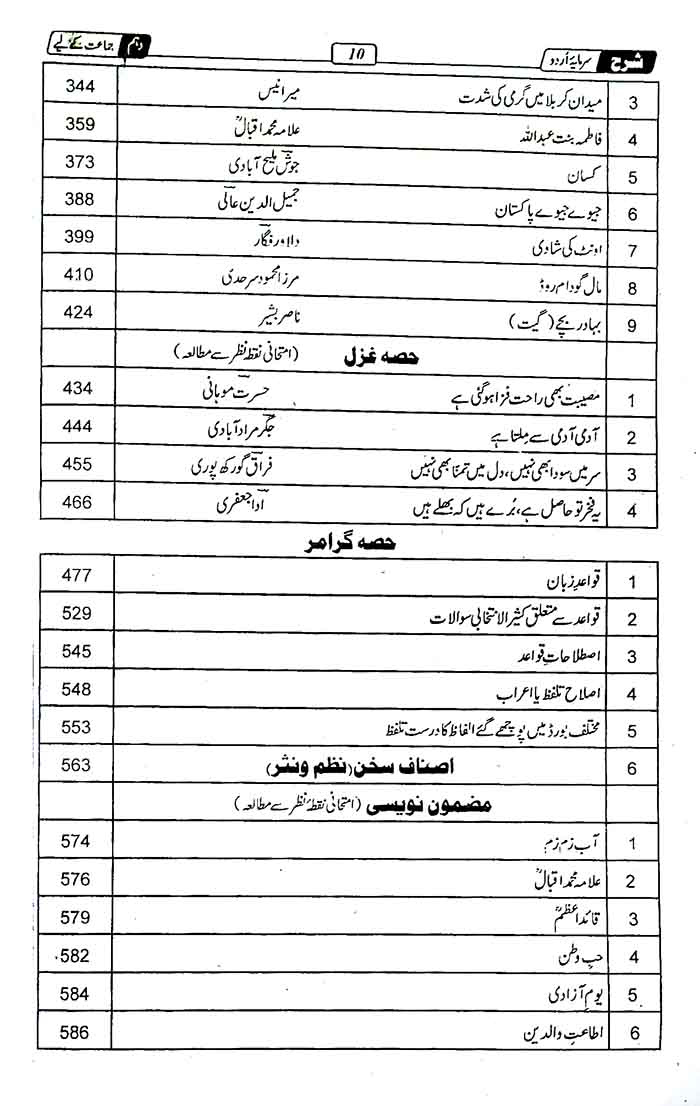 شرح سرمایۂ اُردو 10 دہم جماعت کے لیے
3 میدان کربلا میں گرمی کی شدت میر انیس 344
4 فاطمہ بنت عبداللہ علامہ محمد اقبالؒ 359
5 کسان جوشؔ ملیح آبادی 373
6 جیوے جیوے پاکستان جمیل الدین عالیؔ 388
7 اونٹ کی شادی دلاور فگارؔ 399
8 مال گودام روڈ مرزا محمود سرحدی 410
9 بہادر بچے (گیت) ناصر بشیر 424
حصہ غزل (امتحانی نقطۂ نظر سے مطالعہ)
1 مصیبت بھی راحت فزا ہو گئی ہے حسرتؔ موہانی 434
2 آدمی آدمی سے ملتا ہے جگرؔ مراد آبادی 444
3 سر میں سودا بھی نہیں، دل میں تمنّا بھی نہیں فراقؔ گورکھ پوری 455
4 یہ فخر تو حاصل ہے، بُرے ہیں کہ بھلے ہیں اداؔ جعفری 466
حصہ گرامر
1 قواعدِ زبان 477
2 قواعد سے متعلق کثیر الانتخابی سوالات 529
3 اصطلاحاتِ قواعد 545
4 اصلاح تلفظ یا اعراب 548
5 مختلف بورڈ میں پوچھے گئے الفاظ کا درست تلفظ 553
6 اصناف سخن (نظم ونثر) 563
مضمون نویسی (امتحانی نقطۂ نظر سے مطالعہ)
1 آب زم زم 574
2 علامہ محمد اقبالؒ 576
3 قائد اعظمؒ 579
4 حبِ وطن 582
5 یومِ آزادی 584
6 اطاعتِ والدین 586